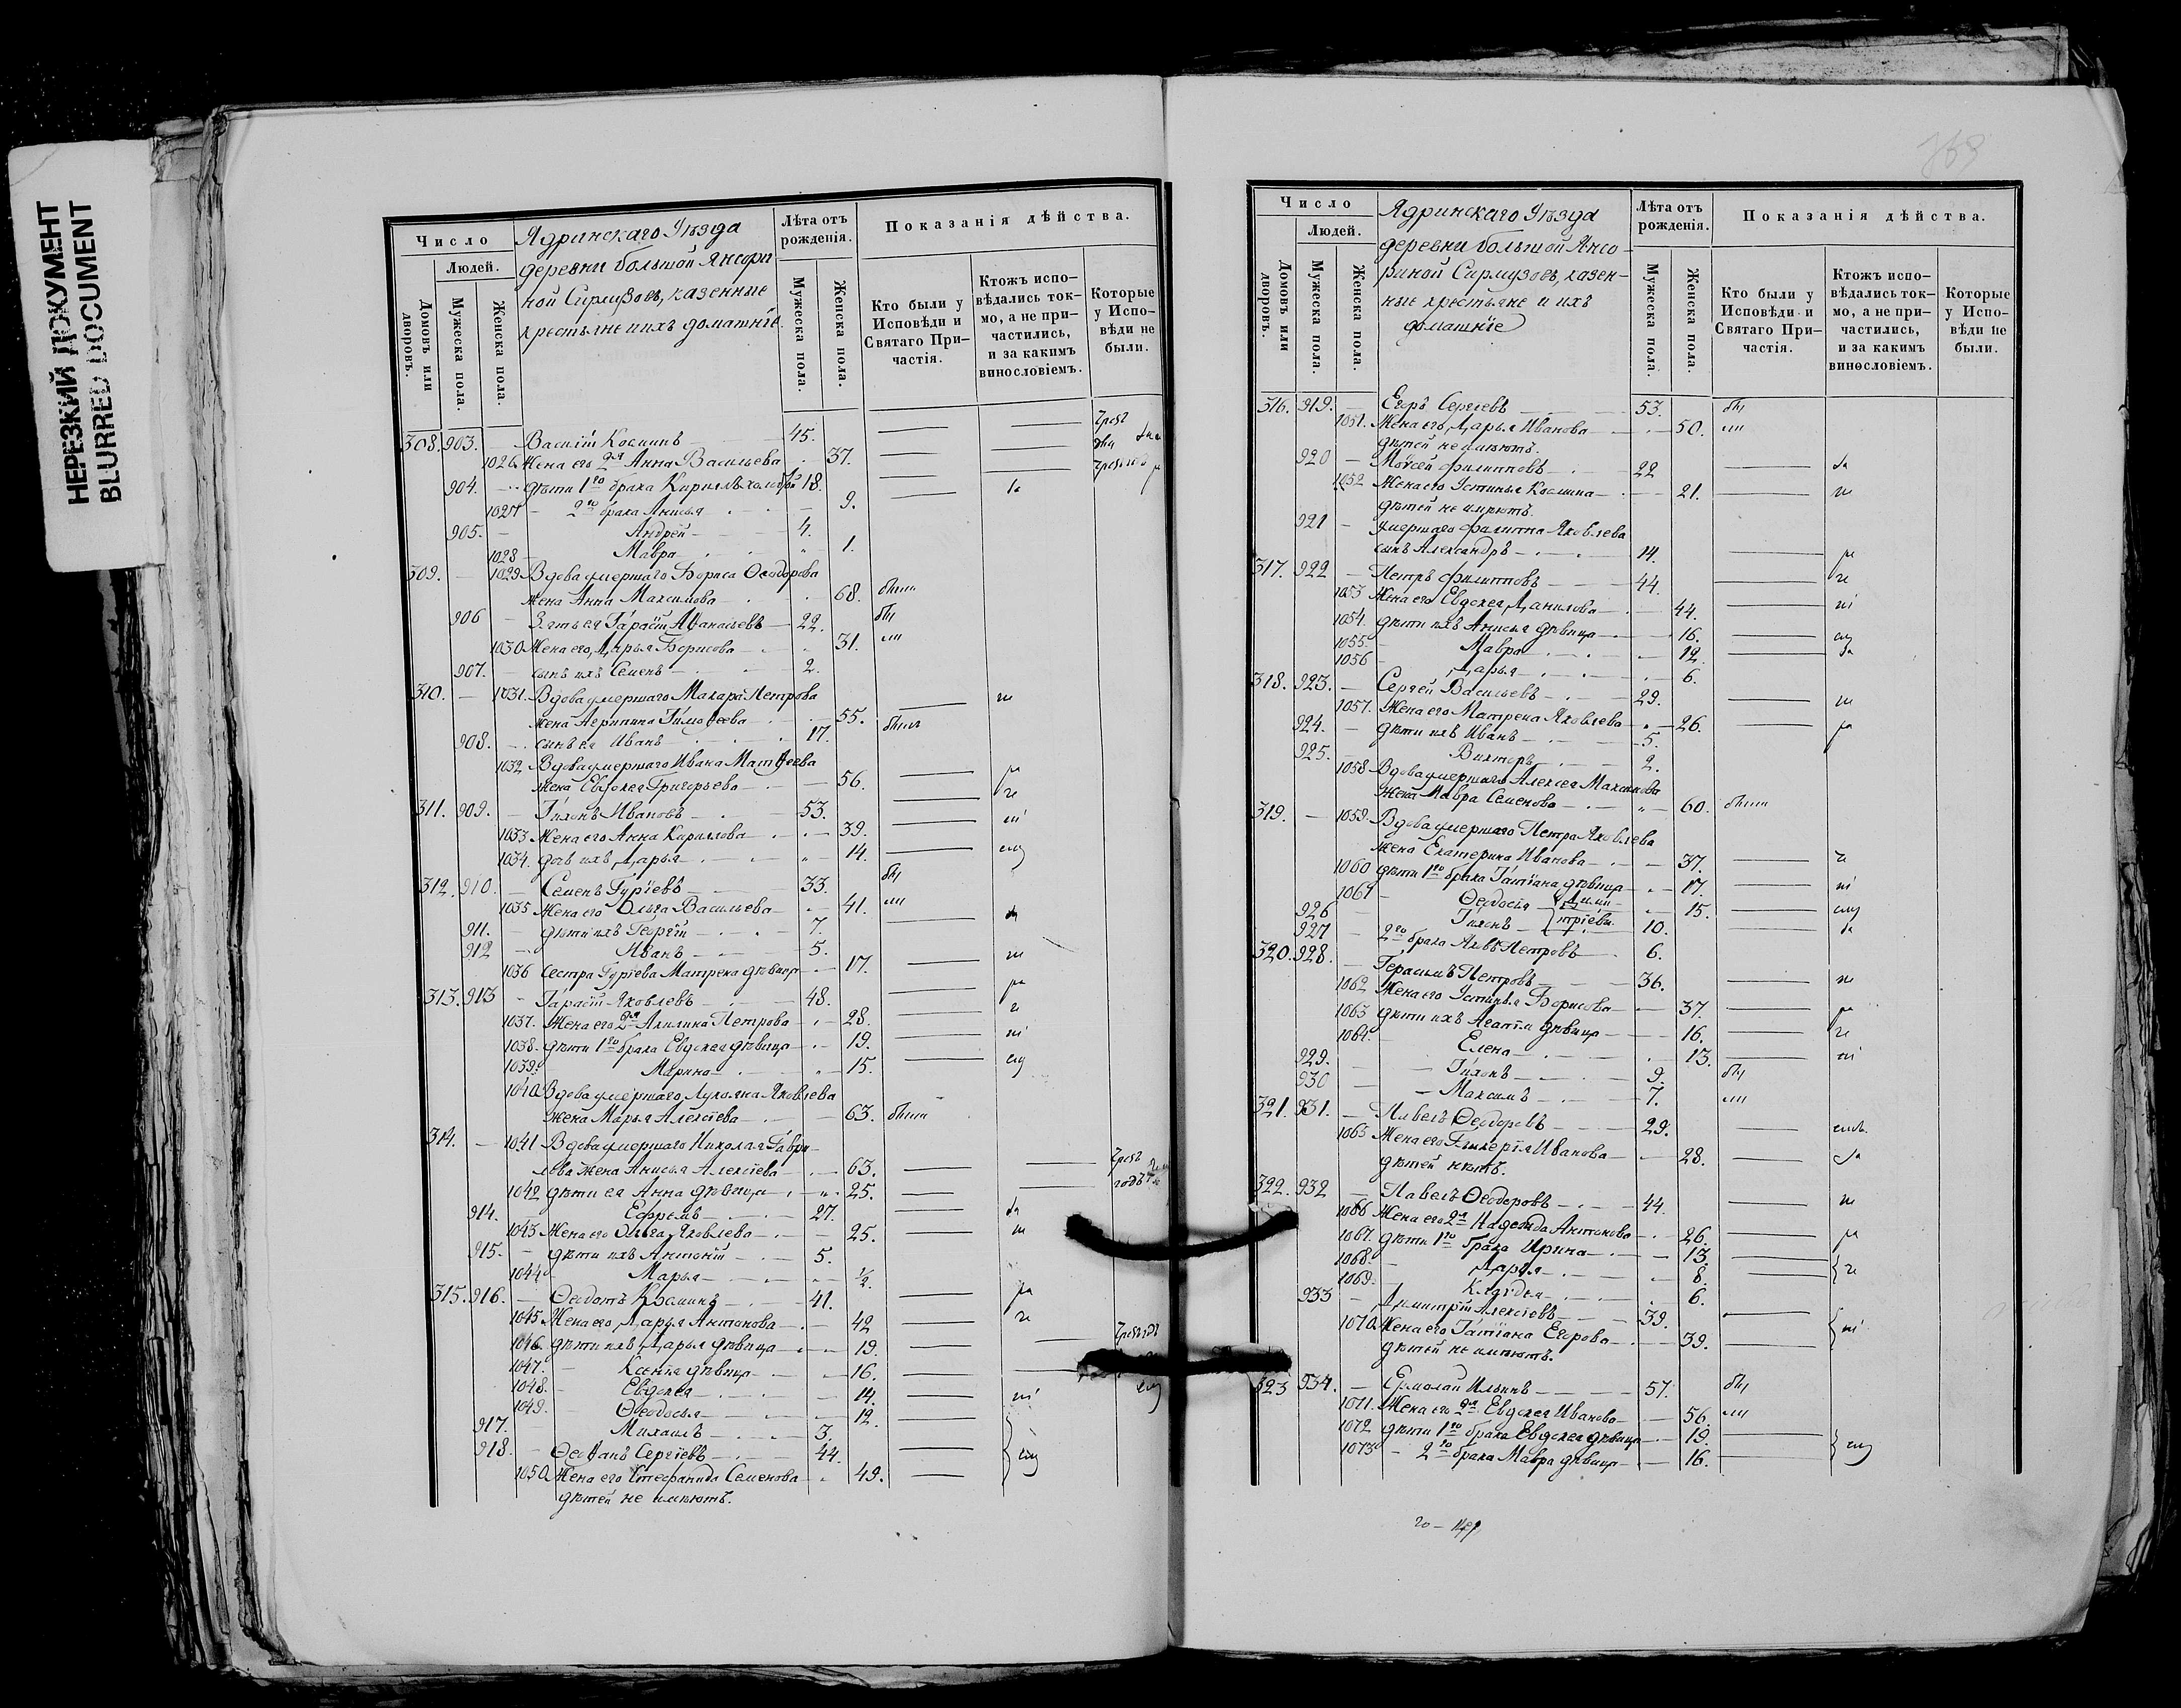 НЕРЕЗКИЙ ДОКУМЕНТ
BLURRED DOCUMENT
Число
Людей.
Домовъ или дворовъ.
Мужеска пола.
Женска пола.
Ядринскаго Уѣзда
деревни большой Янсори
ной Сирмузовъ, казенные
крестьяне и ихъ домашніе
Лѣта отъ рожденія.
Мужеска пола.
Женска пола.
Показанія дѣйства.
Кто были у Исповѣди и Святаго Причастія.
Ктожъ исповѣдались токмо, а не причастились, и за какимъ винословіемъ.
Которые у Исповѣди не были.
308. 903. — Василій Косминъ 45.
1026. Жена его 2я Анна Васильева 37.
904. — дѣти 1го брака Кириллъ холостой 18.
1027 — 2го брака Анисья 9.
905. — Андрей 4.
1028 — Мавра 1.
309. — 1029 Вдова умершаго Бориса Ѳеодорова
жена Анна Максимова 68. были
906 — Зять ея Тарасій Аѳанасьевъ 22. бы
1030 Жена его Дарья Борисова 31. ли
907. — сынъ ихъ Семенъ 2.
310. — 1031. Вдова умершаго Макара Петрова
жена Агрипина Тимоѳеева 55.
908. — сынъ ея Иванъ 17. былъ
1032 Вдова умершаго Ивана Матѳеева
жена Евдокея Григорьева 56.
311. 909. — Тихонъ Ивановъ 53.
1033 Жена его Анна Кириллова 39.
1034. дочь ихъ Дарья 14.
312. 910. — Семенъ Гуріевъ 33. бы
1035 Жена его Ольга Васильева 41. ли
911. — дѣти ихъ Георгій 7.
912 — Иванъ 5.
1036 сестра Гуріева Матрена дѣвица 17.
313. 913 — Тарасій Яковлевъ 48.
1037. Жена его 2я Акилина Петрова 28.
1038. дѣти 1го брака Евдокея дѣвица 19.
1039. Марина 15.
1040. Вдова умершаго Лукояна Яковлева
жена Марья Алексѣева 63. были
314. — 1041 Вдова умершаго Николая Гаври-
лова жена Анисья Алексіева 63.
1042 дѣти ея Анна дѣвица 25.
914. — Ефремъ 27.
1043 Жена его Ольга Яковлева 25.
915. — дѣти ихъ Антоній 5.
1044 — Марья ½
315. 916. — Ѳеодотъ Косминъ 41.
1045 Жена его Дарья Антонова 42
1046. дѣти ихъ Дарья дѣвица 19.
1047. — Ксенія дѣвица 16.
1048. — Евдокея 14.
1049. — Ѳеодосья 12.
917. Михаилъ 3.
918. — Ѳеоѳанъ Сергіевъ 44.
1050. Жена его Стефанида Семенова 49.
дѣтей не имѣютъ.
Число
Людей.
Домовъ или дворовъ.
Мужеска пола.
Женска пола.
Ядринскаго Уѣзда
деревни большой Янсо-
риной Сирмузовъ, казен-
ные крестьяне и ихъ
домашніе
Лѣта отъ рожденія.
Мужеска пола.
Женска пола.
Показанія дѣйства.
Кто были у Исповѣди и Святаго Причастія.
Ктожъ исповѣдались токмо, а не причастились, и за какимъ винословіемъ.
Которые у Исповѣди не были.
316. 919. — Егоръ Сергіевъ 53. бы
1051. Жена его Дарья Иванова 50. ли
дѣтей не имѣютъ.
920 — Мойсей Филипповъ 22
1052 Жена его Устинья Космина 21.
дѣтей не имѣютъ.
921 — умершаго Филиппа Яковлева
сынъ Александръ 14.
317. 922 — Петръ Филипповъ 44.
1053 Жена его Евдокея Данилова 44.
1054. дѣти ихъ Анисья дѣвица 16.
1055. — Мавра 12.
1056 — Дарья 6.
318. 923. — Сергей Васильевъ 29.
1057. Жена его Матрена Яковлева 26.
924. — дѣти ихъ Иванъ 5.
925. — Викторъ 2.
1058 Вдова умершаго Алексея Максимова
жена Мавра Семенова 60. были
319. — 1059. Вдова умершаго Петра Яковлева
жена Екатерина Иванова 37.
1060 дѣти 1го брака Татіана дѣвица 17.
1061 — Ѳеодосья Дими- 15.
926 — Тихонъ тріевы 10.
927 — 2го брака Яковъ Петровъ 6.
320. 928. — Герасимъ Петровъ 36.
1062 Жена его Устинья Борисова 37.
1063 дѣти ихъ Агафія дѣвица 16.
1064. — Елена 13.
929. — Тихонъ 9. бы
930 — Максимъ 7. ли
321. 931. — Павелъ Ѳеодоровъ 29.
1065 Жена его Гликерія Иванова 28.
дѣтей нѣтъ.
322. 932 — Павелъ Ѳеодоровъ 44.
1066 Жена его 2я Надежда Антонова 26.
1067. дѣти 1го брака Ирина 13.
1068. — Дарья 8.
1069. — Клавдія 6.
933 — Димитрій Алексіевъ 39.
1070. Жена его Татіана Егорова 39.
дѣтей не имѣютъ.
323 934. — Ермолай Ильинъ 57. бы
1071. Жена его 2я Евдокея Иванова 56. ли
1072 дѣти 1го брака Евдокея дѣвица 19.
1073 — 2го брака Мавра дѣвица 16.